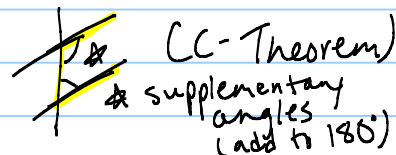 (CC-Theorem)
supplementary
angles
(add to 180°)